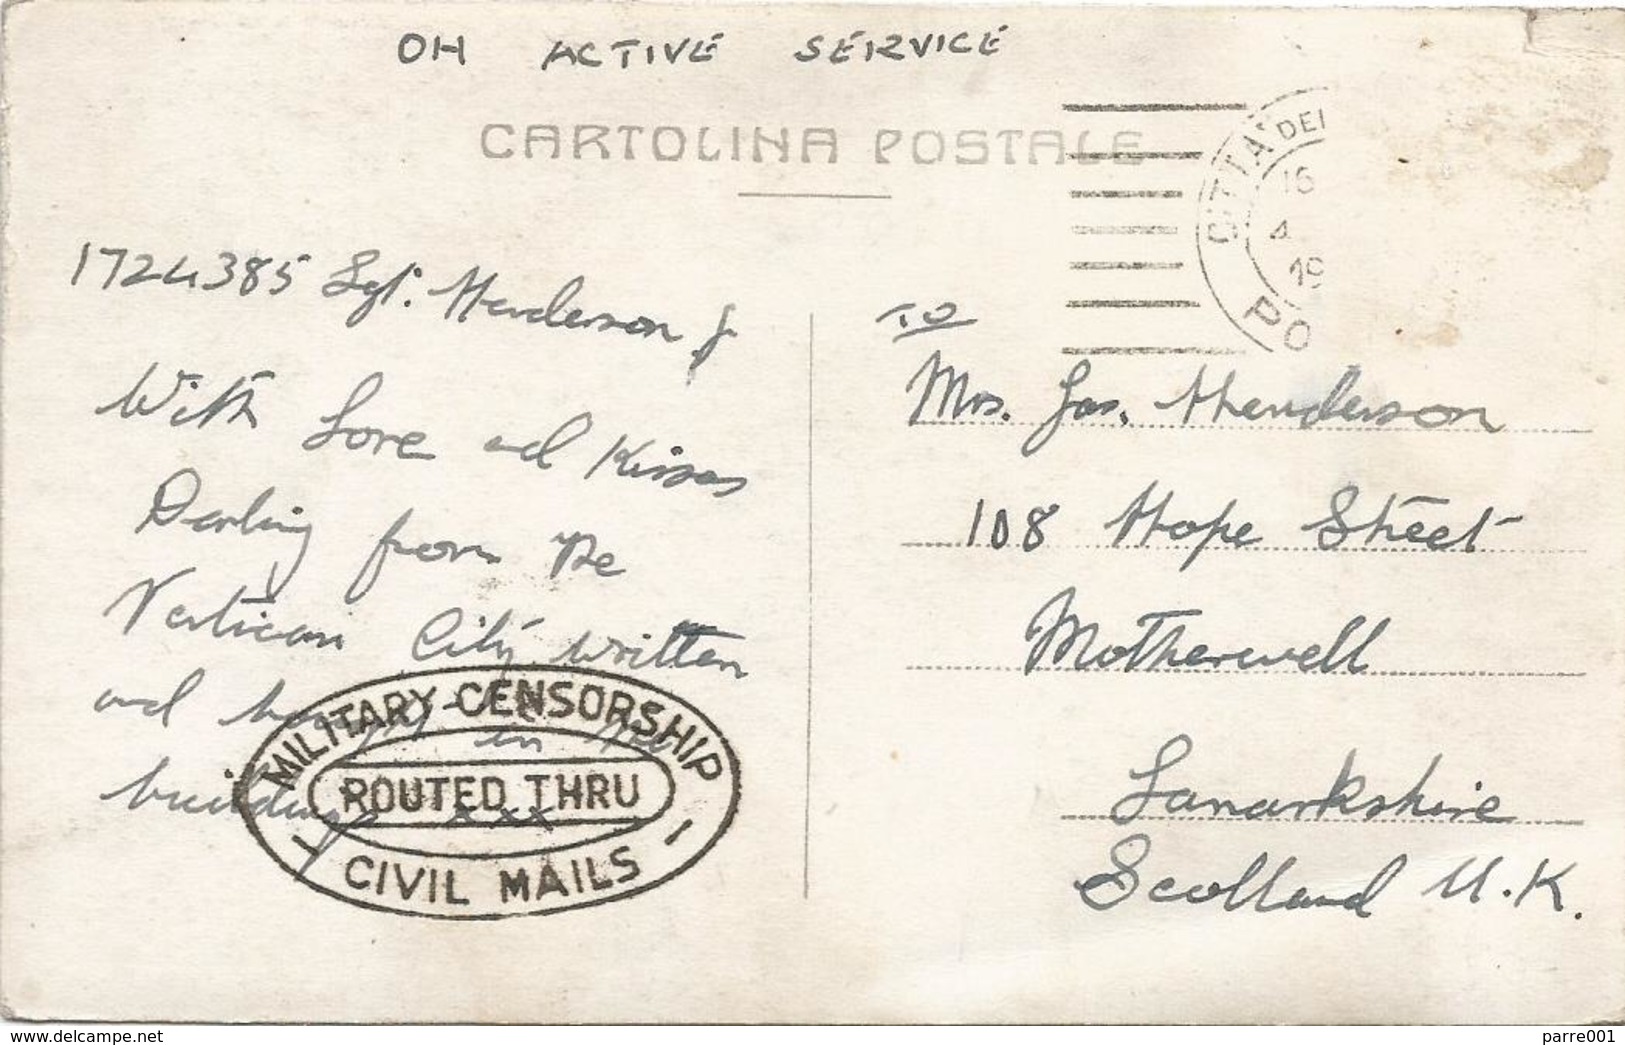 ON ACTIVE SERVICE
CARTOLINA POSTALE
CITTA DEL
16
4
19
PO
1724385 Sgt. Henderson J
With Love and Kisses
Darling from the
Vatican City written
and bought in the
buildings xxx
MILITARY CENSORSHIP
ROUTED THRU
CIVIL MAILS
TO
Mrs. Jas. Henderson
108 Hope Street
Motherwell
Lanarkshire
Scotland U.K.
www.delcampe.net
parre001